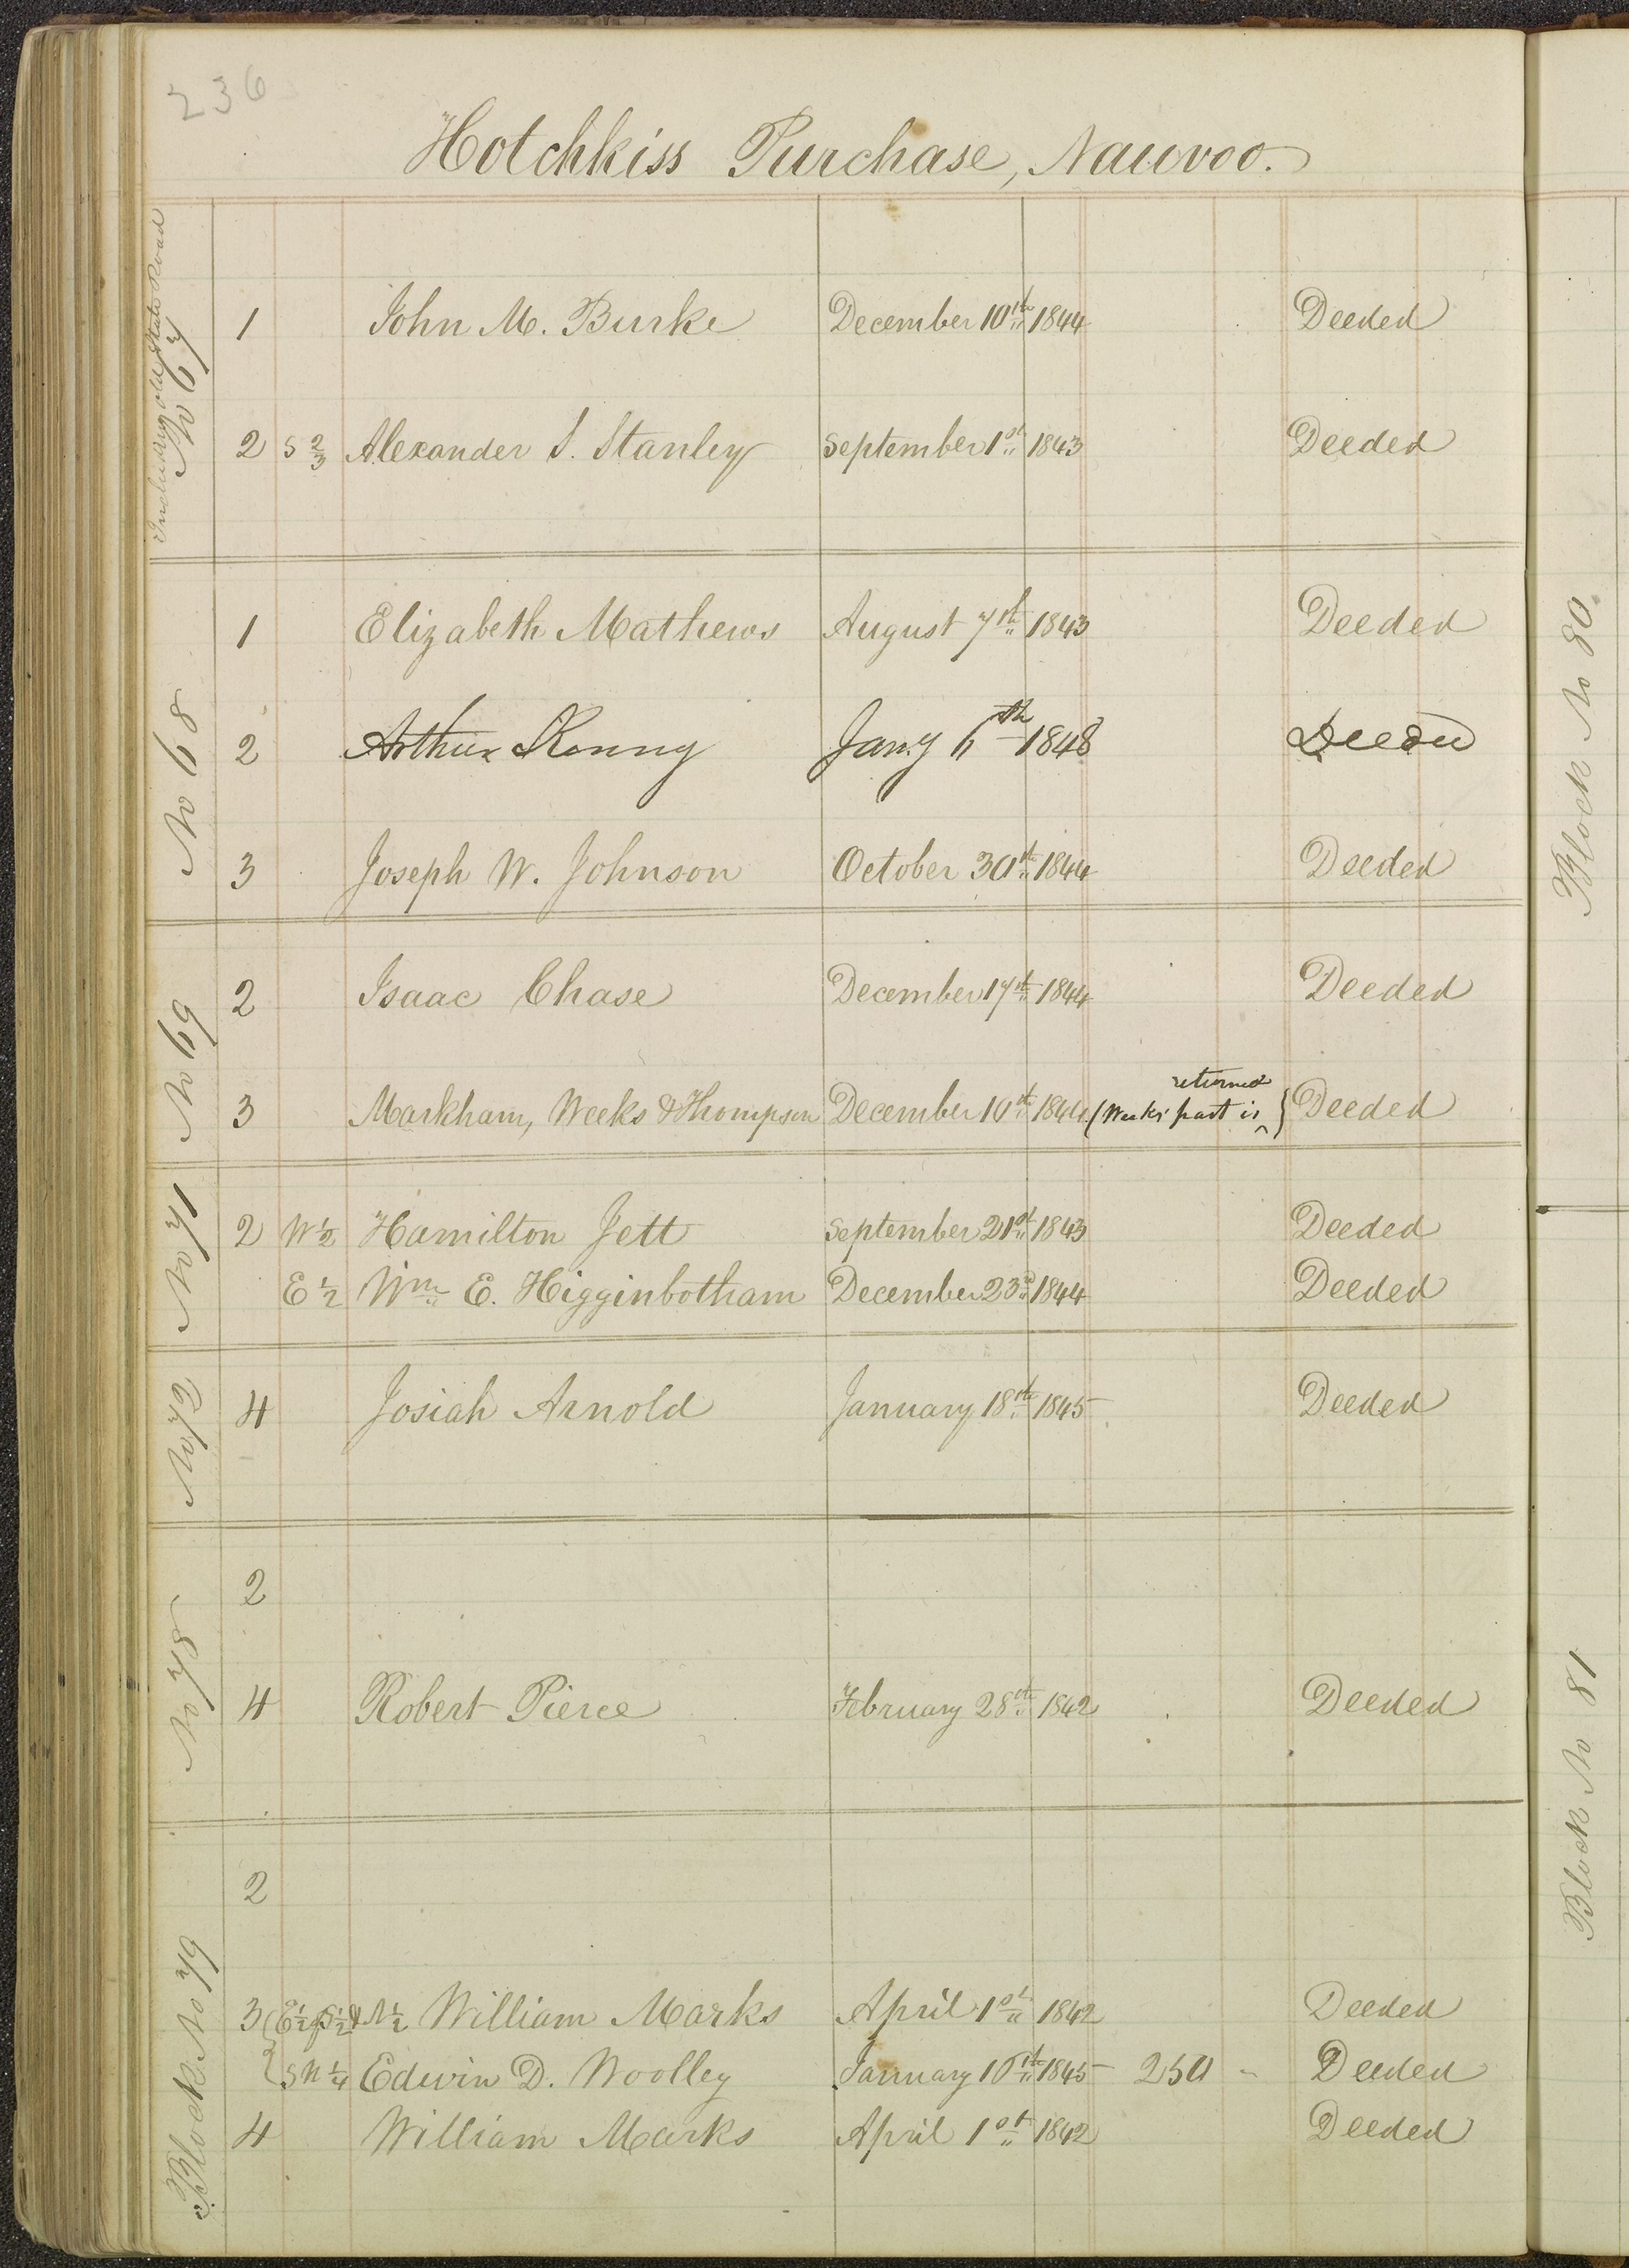 236
Hotchkiss Purchase, Nauvoo.
Including old State Road
No 67
1 John M. Burke December 10th 1844 Deeded
2 S 2/3 Alexander S. Stanley September 1st 1843 Deeded
No 68
1 Elizabeth Mathews August 7th 1843 Deeded
2 Arthur Kenny Jany 6th 1848 Deeded
3 Joseph W. Johnson October 30th 1844 Deeded
No 69
2 Isaac Chase December 17th 1844 Deeded
returned
3 Markham, Weeks & Thompson December 10th 1844 (Weeks' part is ^) Deeded
No 71
2 W 1/2 Hamilton Jett September 21st 1843 Deeded
E 1/2 Wm E. Higginbotham December 23d 1844 Deeded
No 72
4 Josiah Arnold January 18th 1845 Deeded
No 78
2
4 Robert Pierce February 28th 1842 Deeded
Block No 79
2
3 E 1/2 S 1/2 & N 1/2 William Marks April 1st 1842 Deeded
1/4 Edwin D. Woolley January 1845 250 - Deeded
4 William Marks April 1st 1842 Deeded
Block No 80.
Block No 81